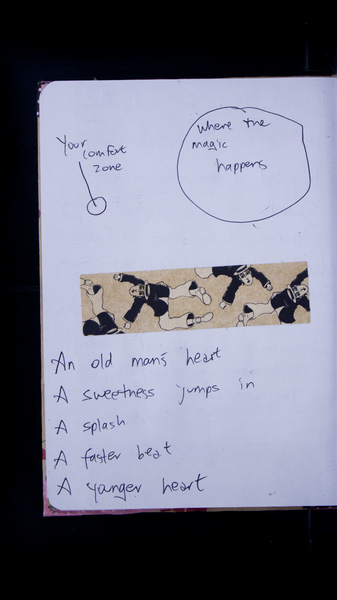 Your
comfort
zone
where the
magic
happens
An old man's heart
A sweetness jumps in
A splash
A faster beat
A younger heart